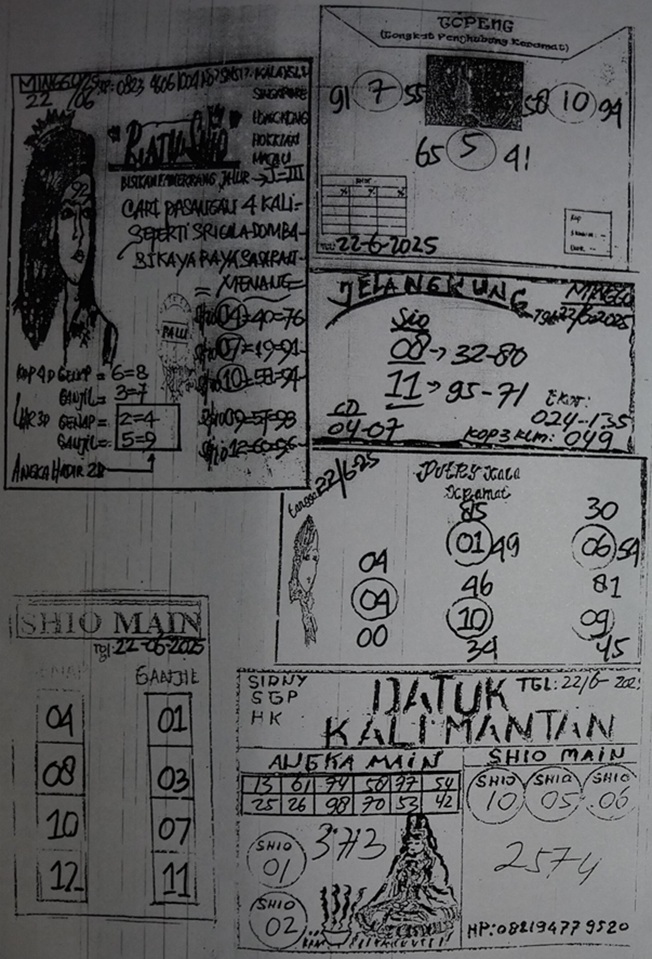 MINGGU
22/06
KALAYSIA
SINGAPORE
HONGKONG
HOKKIAN
MACAU
"RATU SHIO"
CARI PASANGAN 4 KALI-
SEPERTI SRIGALA DOMBA-
= MENANG =
92
PALU
04=40=76
07=19=91-
10=58=94-
09=57=93
12=60=96-
KOP 4D GENAP = 6=8
GANJIL = 3=7
GENAP = 2=4
GANJIL = 5=9
ANGKA HADIR 2D
TOPENG
(Tongkat Penghubung Keramat)
91 7 55
58 10 94
65 5 41
22-6-2025
JELANGKUNG
MINGGU
TGL 22/6-2025
Sio
08 → 32-80
11 → 95-71
CD
04-07
EKOR:
024-135
KOP 3 KLM: 049
22/6-25
PUTRY Kaca
Keramat
85 30
01 49 06 54
04
46 81
04
10 09
00
34 45
SHIO MAIN
Tgl: 22-06-2025
GANJIL
04 01
08 03
10 07
12 11
SIDNY
SGP
HK
DATUK
KALIMANTAN
TGL: 22/6-202
ANGKA MAIN
13 61 74 58 77 54
25 26 98 70 53 42
SHIO MAIN
SHIO 10
SHIO 05
SHIO 06
SHIO 01
SHIO 02
373
2574
HP: 082194779520